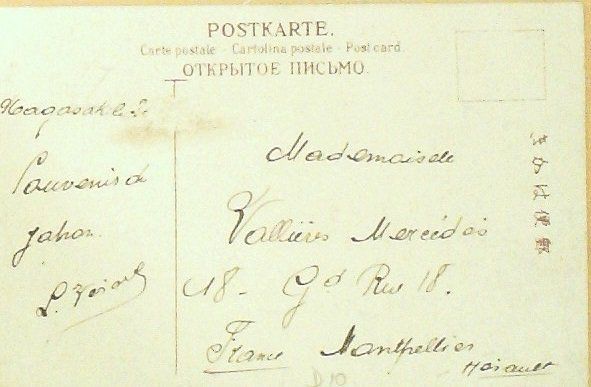 POSTKARTE.
Carte postale - Cartolina postale - Post card.
ОТКРЫТОЕ ПИСЬМО.
Nagasaki le
Souvenir du
Japon.
L.
Mademoiselle
Vallières Mercédès
18 - Gd Rue 18.
France Montpellier
Hérault
D10
きかは便郵